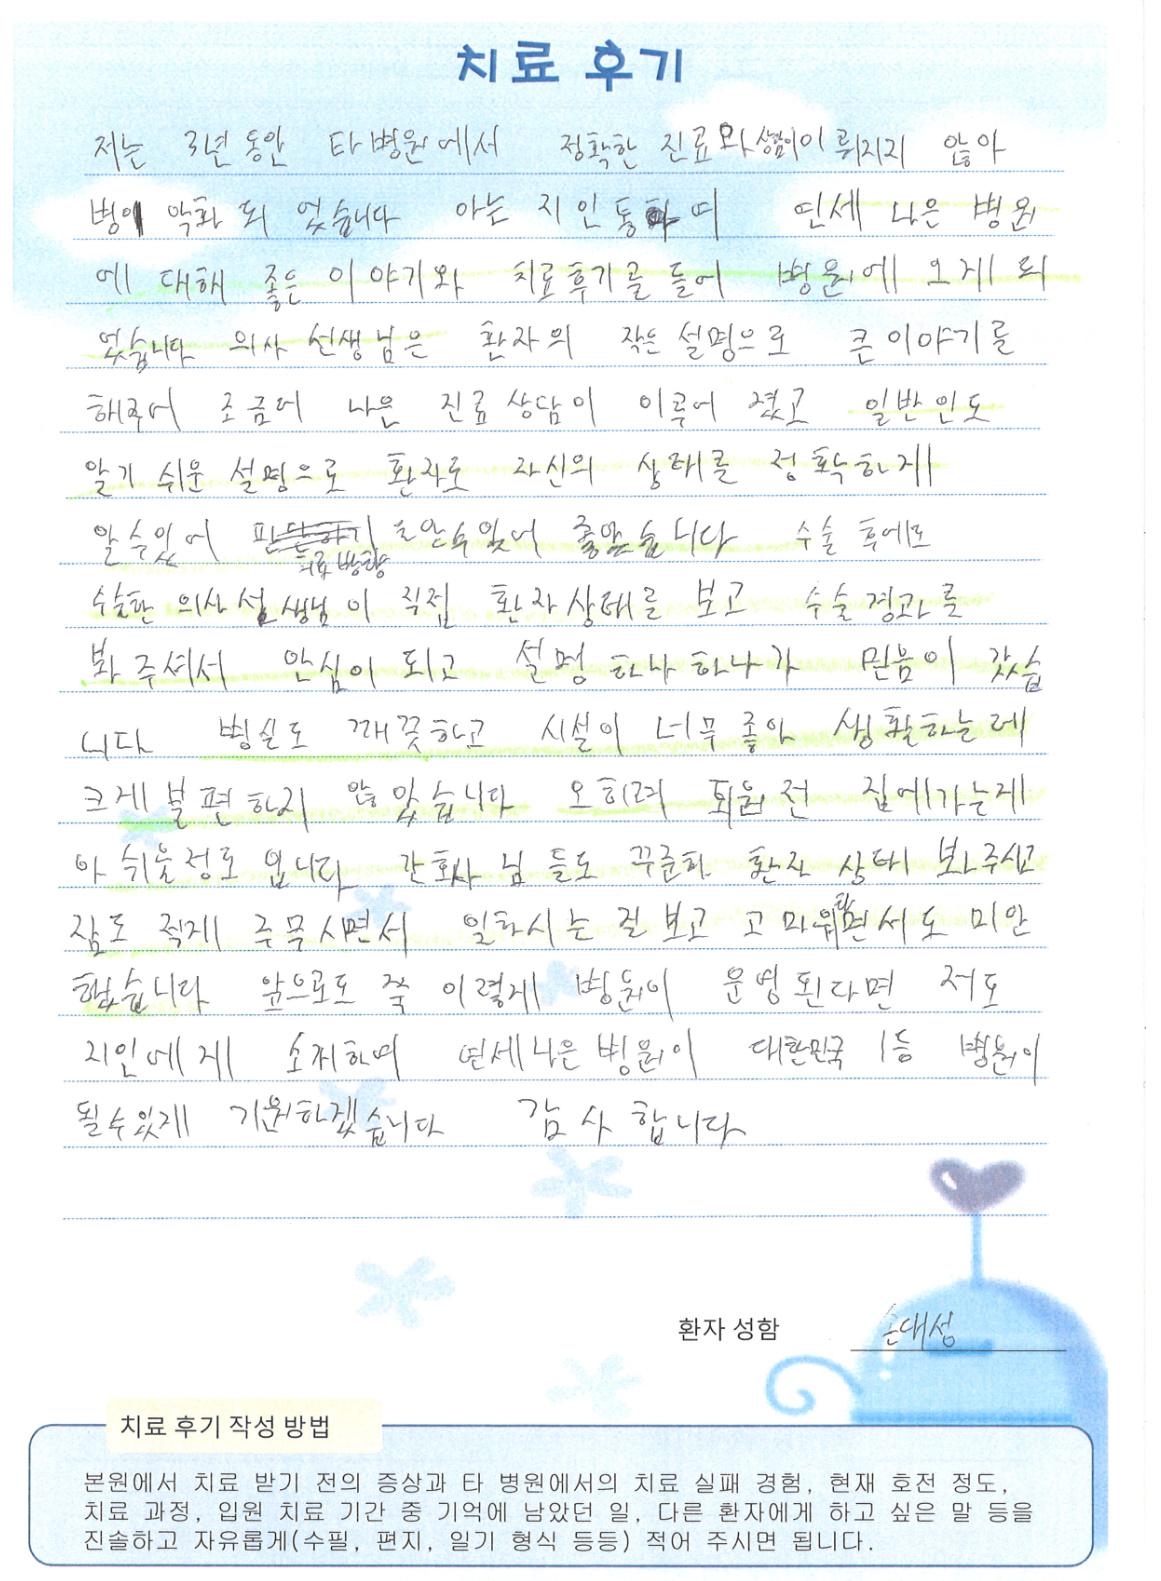 치료 후기
저는 3년 동안 타 병원에서 정확한 진료와 상담이 이뤄지지 않아
병이 악화 되 었습니다 아는 지인 통하여 연세 나은 병원
에 대해 좋은 이야기와 치료후기를 들어 병원에 오게 되
었습니다 의사 선생님은 환자의 작은 설명으로 큰 이야기를
해주어 조금더 나은 진료 상담이 이루어 졌고 일반인도
알기 쉬운 설명으로 환자로 자신의 상태를 정확하게
알수있어 치료방향을 알수있어 좋았습니다 수술 후에도
수술한 의사 선생님이 직접 환자상태를 보고 수술경과를
봐주셔서 안심이 되고 설명 하나하나가 믿음이 갔습
니다 병실도 깨끗하고 시설이 너무 좋아 생활하는데
크게 불편하지 않았습니다 오히려 퇴원전 집에가는게
아쉬울정도 입니다 간호사 님 들도 꾸준히 환자 상태 봐주시고
잠도 적게 주무시면서 일하시는 걸 보고 고마워하면서도 미안
했습니다 앞으로도 쭉 이렇게 병원이 운영된다면 저도
지인에게 소개하여 연세나은병원이 대한민국 1등 병원이
될수있게 기원하겠습니다 감사합니다
환자 성함 손대성
치료 후기 작성 방법
본원에서 치료 받기 전의 증상과 타 병원에서의 치료 실패 경험, 현재 호전 정도,
치료 과정, 입원 치료 기간 중 기억에 남았던 일, 다른 환자에게 하고 싶은 말 등을
진솔하고 자유롭게(수필, 편지, 일기 형식 등등) 적어 주시면 됩니다.